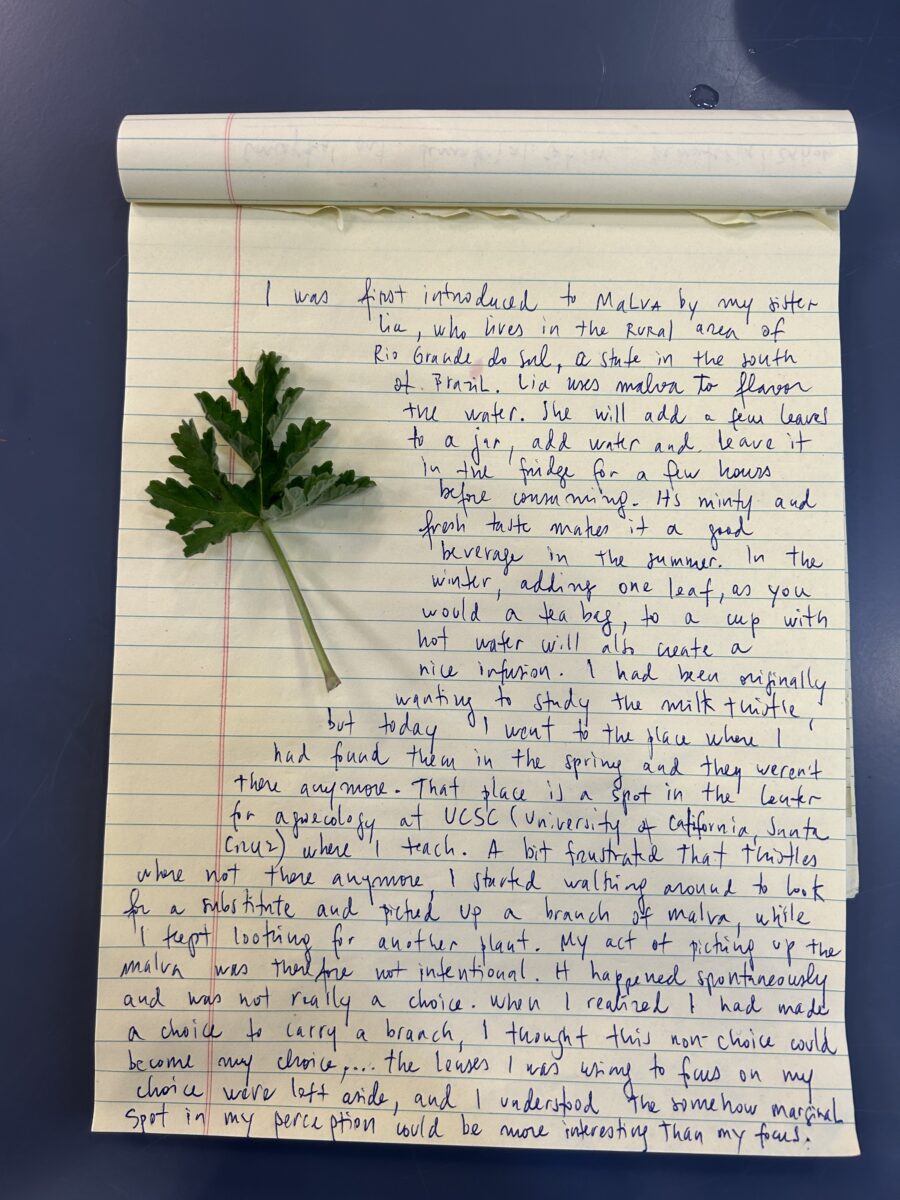 I was first introduced to MALVA by my sister
Lia, who lives in the RURAL area of
Rio Grande do sul, a state in the south
of Brazil. Lia uses malva to flavor
the water. She will add a few leaves
to a jar, add water and leave it
in the fridge for a few hours
before consuming. It's minty and
fresh taste makes it a good
beverage in the summer. In the
winter, adding one leaf, as you
would a tea bag, to a cup with
hot water will also create a
nice infusion. I had been originally
wanting to study the milk thistle,
but today I went to the place where I
had found them in the spring and they weren't
there anymore. That place is a spot in the Center
for agroecology at UCSC (University of California, Santa
Cruz) where I teach. A bit frustrated that thistles
where not there anymore, I started walking around to look
for a substitute and picked up a branch of malva, while
I kept looking for another plant. My act of picking up the
malva was therefore not intentional. It happened spontaneously
and was not really a choice. When I realized I had made
a choice to carry a branch, I thought this non-choice could
become my choice,... the lenses I was using to focus on my
choice were left aside, and I understood the somehow marginal
spot in my perception could be more interesting than my focus.